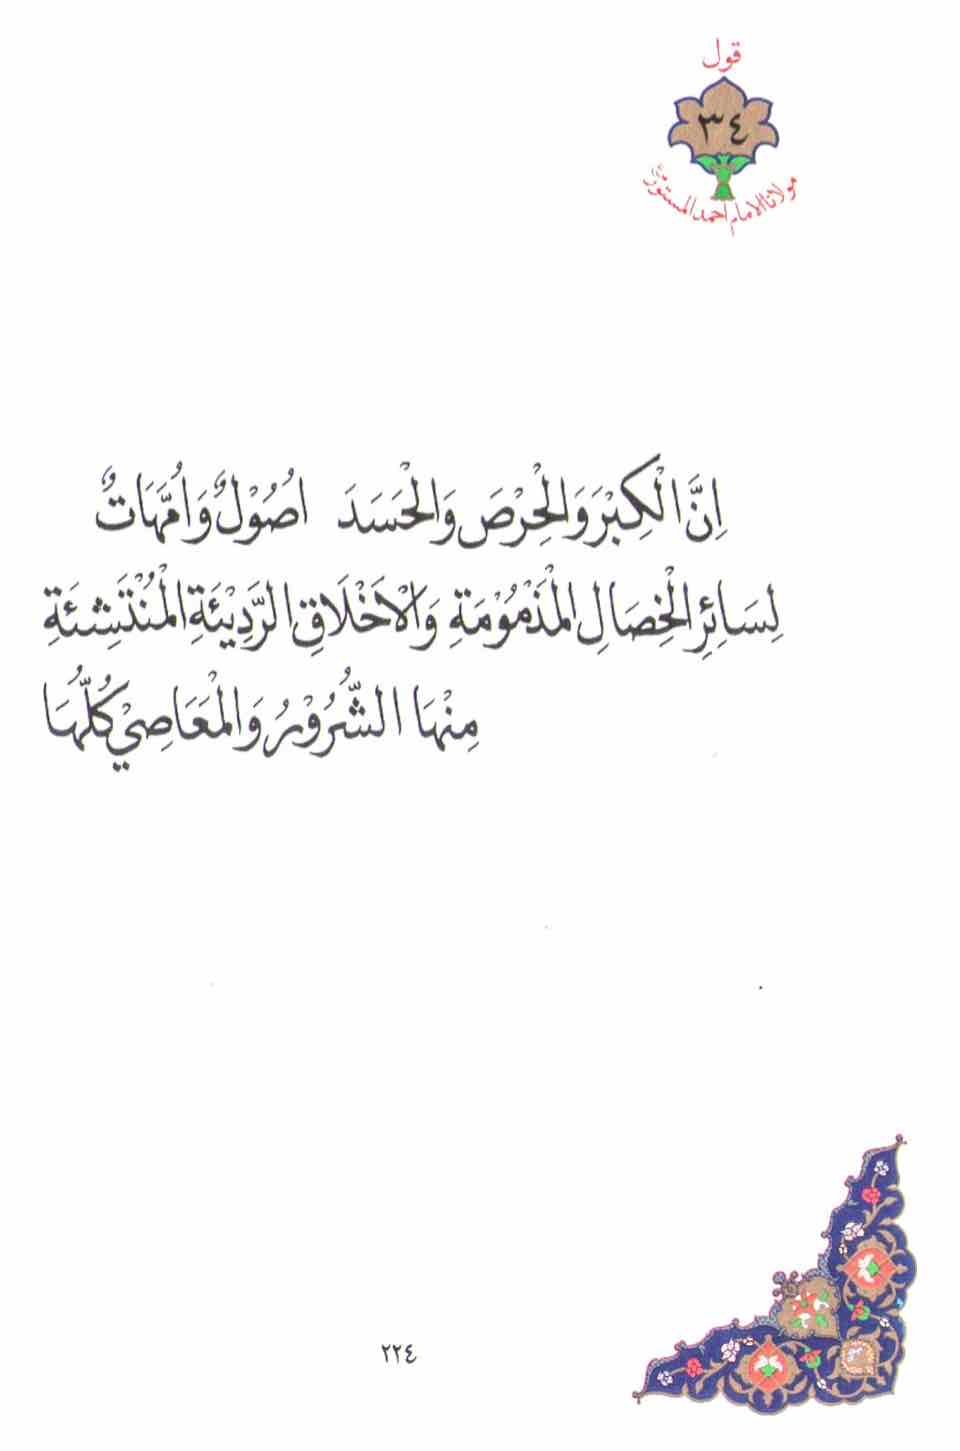 قول
٣٤
مولانا الامام احمد المستور
اِنَّ الْكِبْرَ وَالْحِرْصَ وَالْحَسَدَ اُصُوْلٌ وَاُمَّهَاتٌ
لِسَائِرِ الْخِصَالِ الْمَذْمُوْمَةِ وَالْاَخْلَاقِ الرَّدِيْئَةِ الْمُنْتَشِئَةِ
مِنْهَا الشُّرُوْرُ وَالْمَعَاصِيْ كُلُّهَا
٢٢٤